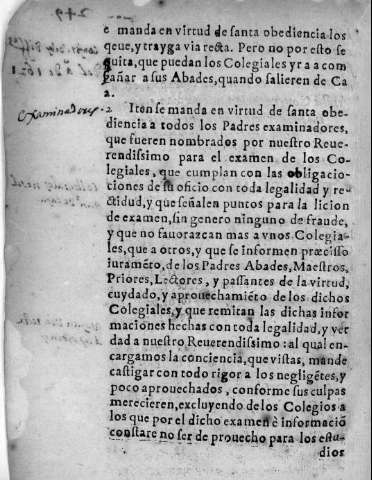 249
e manda en virtud de santa obediencia los
qeue, y trayga via recta. Pero no por esto se
quita, que puedan los Colegiales yr a acom
pañar a sus Abades, quando salieren de Ca
a.
Examinadores. 2 Iten se manda en virtud de santa obe-
diencia a todos los Padres examinadores,
que fueren nombrados por nuestro Reue-
rendissimo para el examen de los Co-
legiales, que cumplan con las obligacio-
ciones de su oficio con toda legalidad y re-
ctidud, y que señalen puntos para la licion
de examen, sin genero ninguno de fraude,
y que no fauorazcan mas a vnos Colegia-
les, que a otros, y que se informen præcisso
iuramẽto, de los Padres Abades, Maestros,
Priores, Lectores, y passantes de la virtud,
cuydado, y aprouechamiẽto de los dichos
Colegiales, y que remitan las dichas infor
maciones hechas con toda legalidad, y ver
dad a nuestro Reuerendissimo: al qual en-
cargamos la conciencia, que vistas, mande
castigar con todo rigor a los negligẽtes, y
poco aprouechados, conforme sus culpas
merecieren, excluyendo de los Colegios a
los que por el dicho examen è informaciõ
constare no ser de prouecho para los estu-
dios